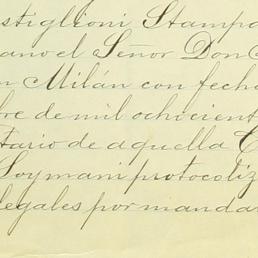 stiglioni Stampa
anoel Señor Don
n Milán con fech
bre de mil ochocient
tario de aquella C
Soymani protocoliz
legales por mandar